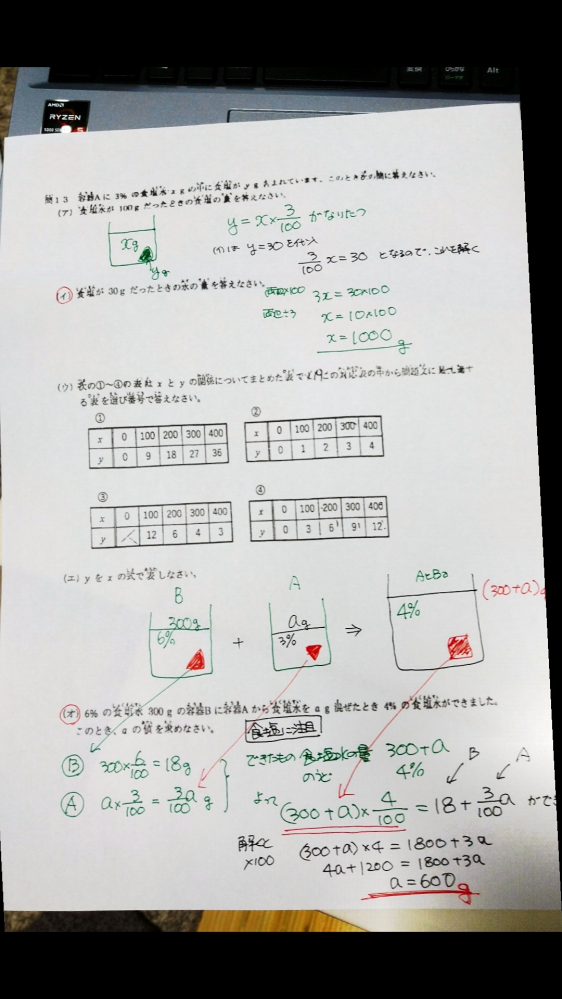 AMD
RYZEN
5
Alt
問13 容器Aに3%の食塩水xgの中に食塩がygふくまれています。このとき次の問に答えなさい。
(ア) 食塩水が100gだったときの食塩の量を答えなさい。
xg
yg
y = x × 3/100 がなりたつ
(イ)は y=30を代入
3/100 x = 30 となるので、これを解く
(イ) 食塩が30gだったときの水の量を答えなさい。
両辺×100 3x = 30×100
両辺÷3 x = 10×100
x = 1000 g
(ウ) 次の①~④の表は x と y の関係についてまとめた表です。この対応表の中から問題文に
る表を選び番号で答えなさい。
①
x 0 100 200 300 400
y 0 9 18 27 36
②
x 0 100 200 300 400
y 0 1 2 3 4
③
x 0 100 200 300 400
y 12 6 4 3
④
x 0 100 200 300 400
y 0 3 6 9 12
(エ) y を x の式で表しなさい。
B
300g
6%
+
A
ag
3%
⇒
AとBを
4%
(300+a)g
(オ) 6%の食塩水300gの容器Bに容器Aから食塩水をag混ぜたとき4%の食塩水ができました。
このとき、aの値を求めなさい。
食塩に注目
B 300×6/100 = 18g
A a×3/100 = 3a/100 g
できたもの 食塩水の量 300+a
のうど 4%
B A
よって (300+a)×4/100 = 18 + 3/100 a ができ
解く ×100
(300+a)×4 = 1800+3a
4a+1200 = 1800+3a
a = 600g